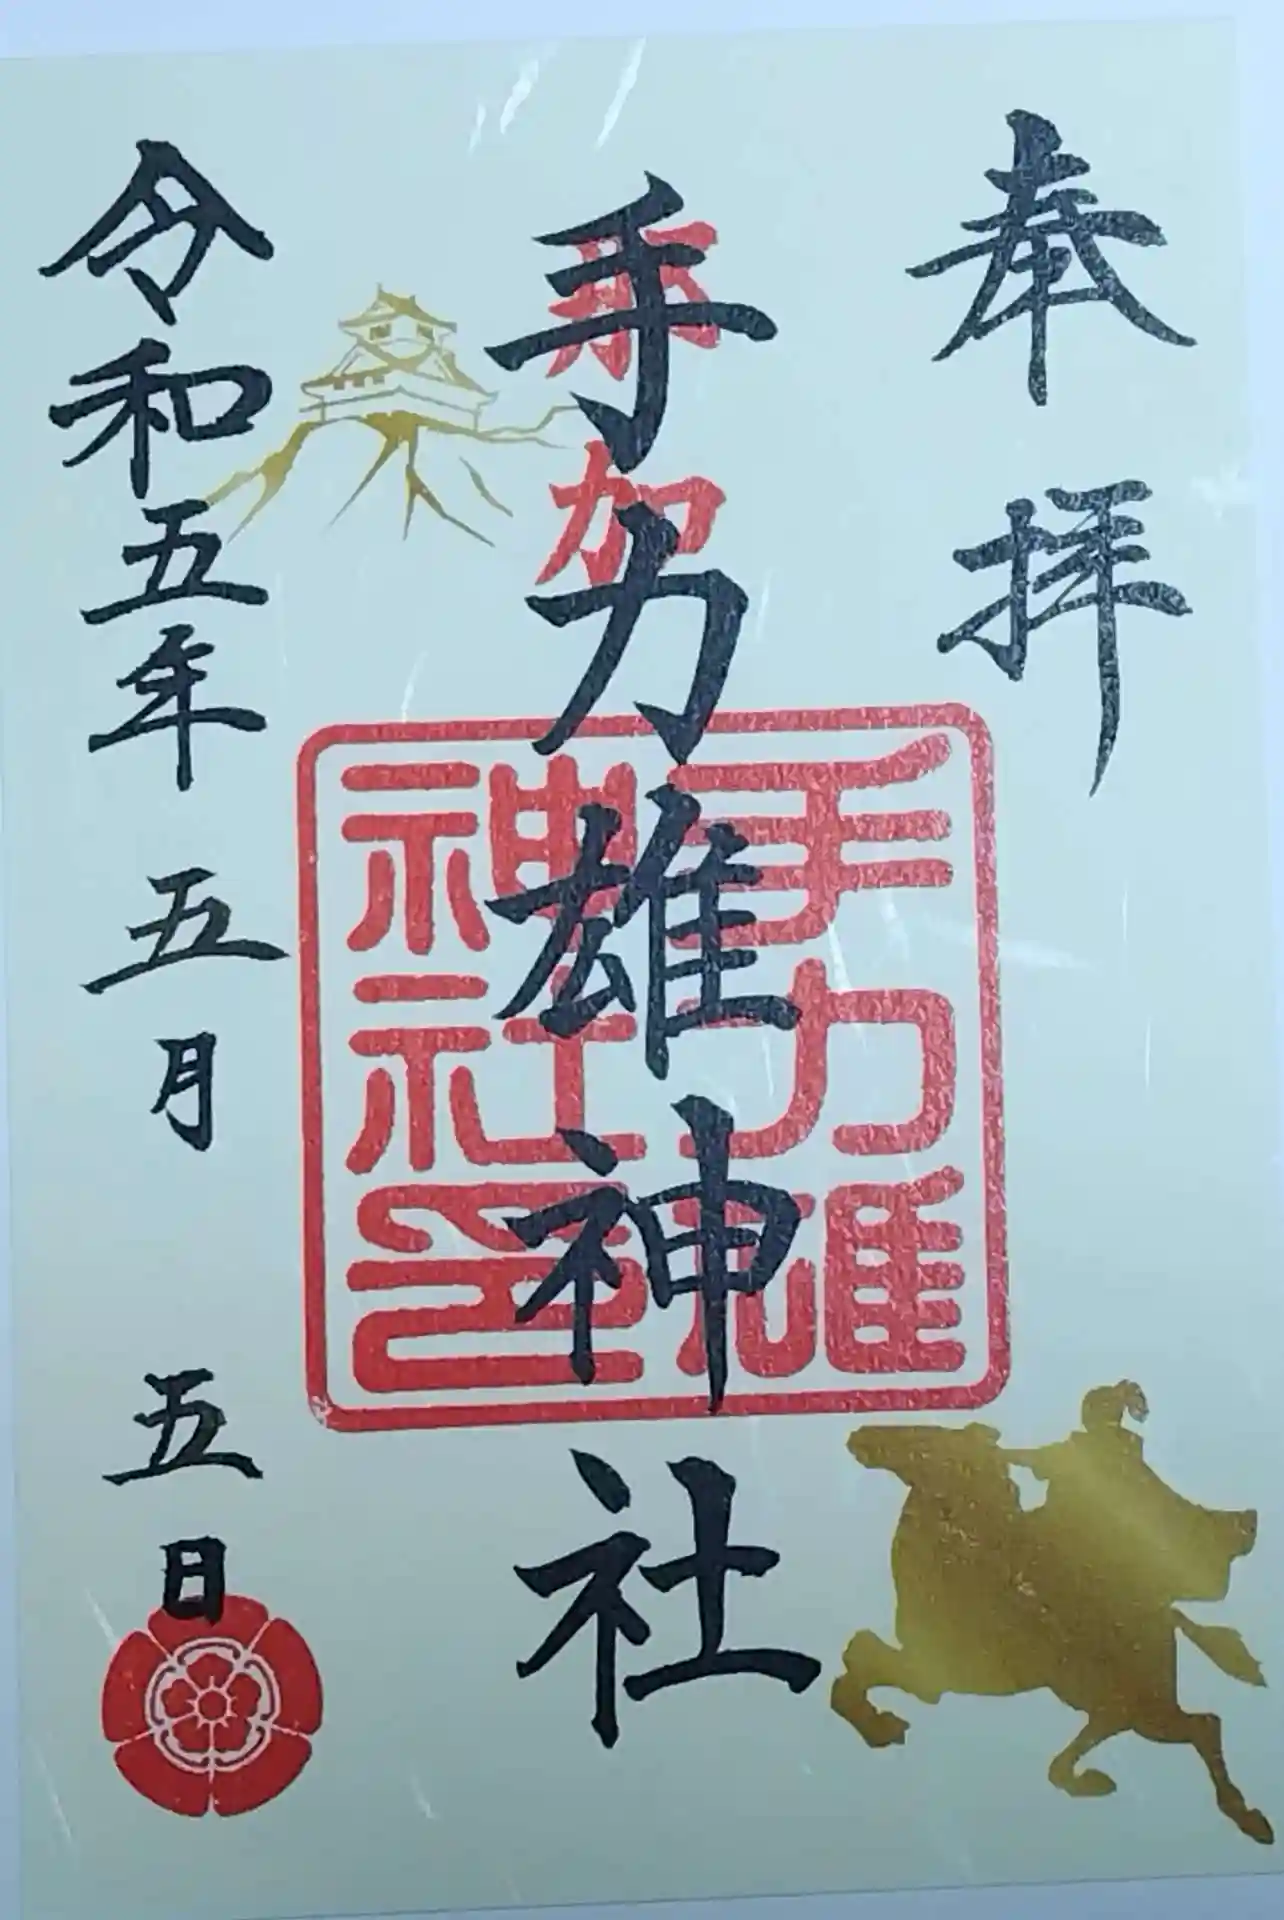 奉拝
那加
手力雄神社
手力雄
神社印
令和五年 五月 五日